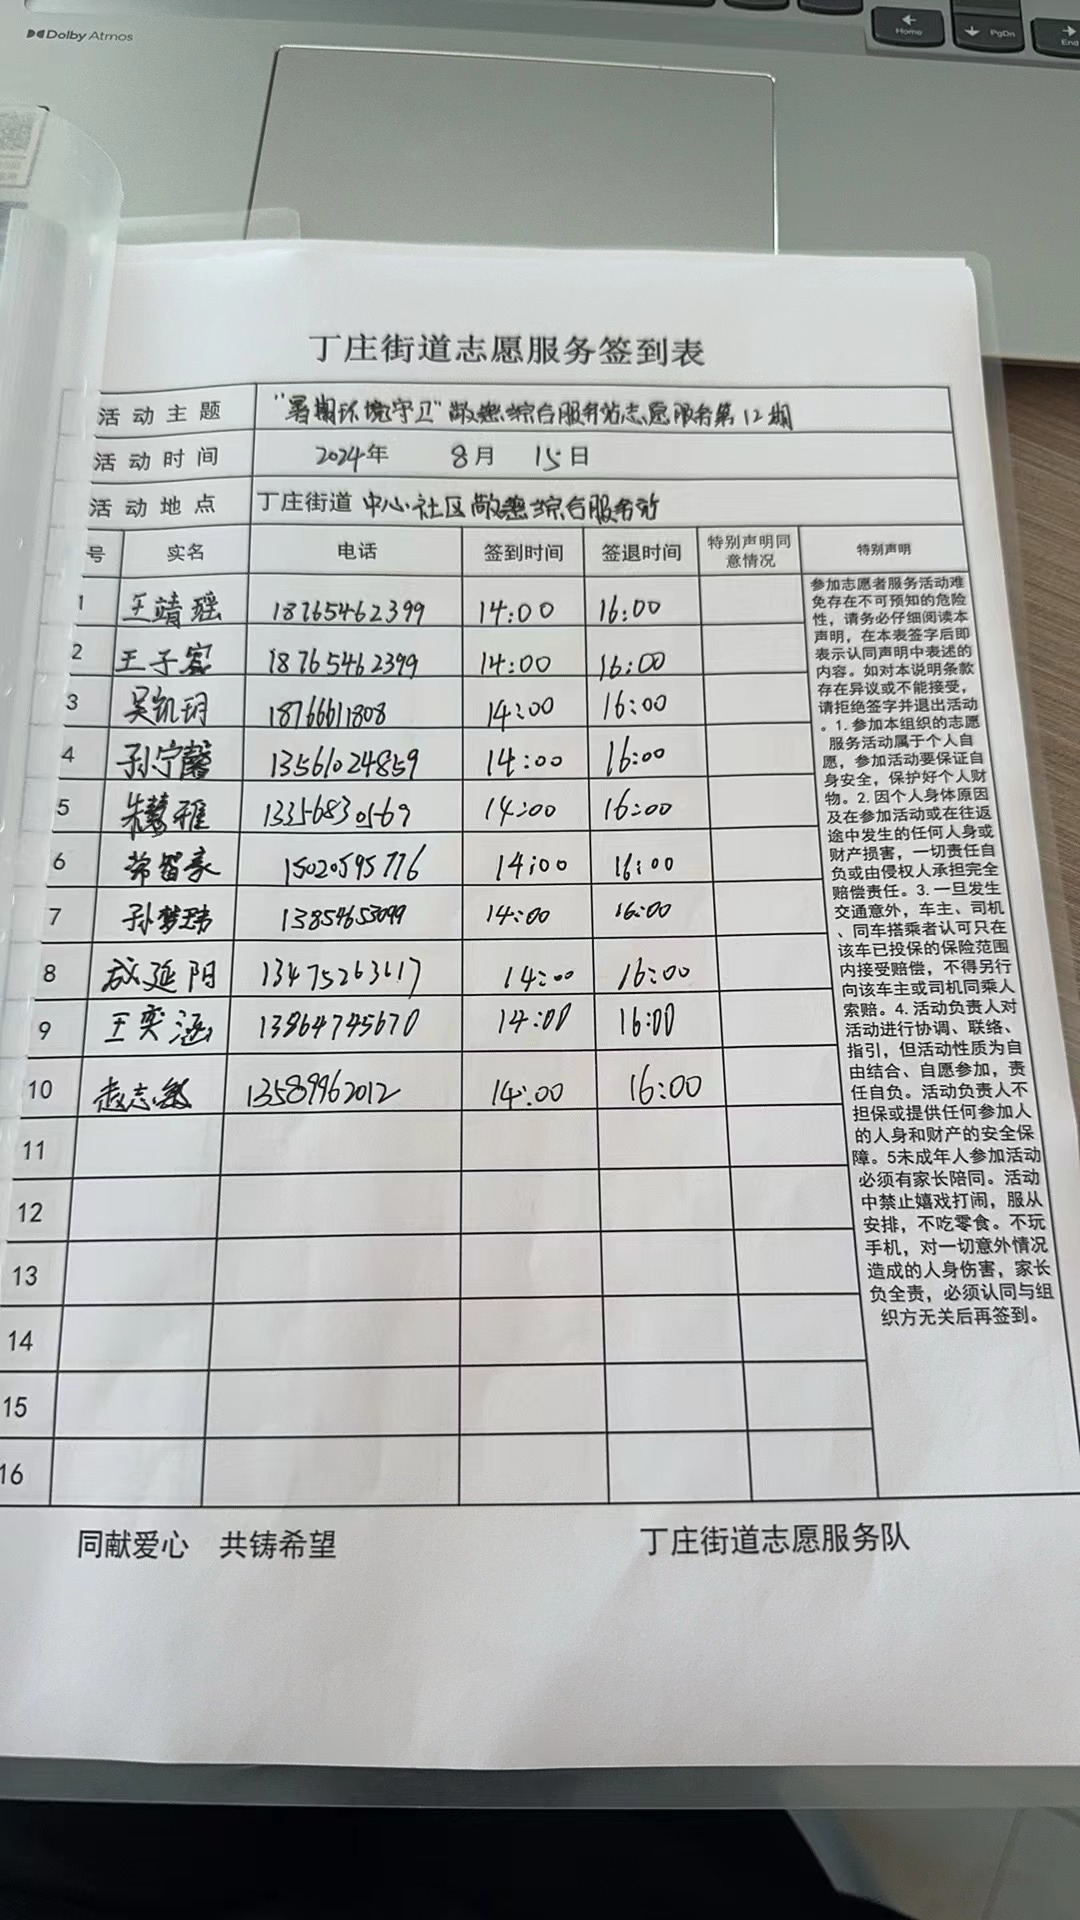 Dolby Atmos
Home
PgDn
End
丁庄街道志愿服务签到表
活动主题 "暑期环境守卫"敞趣综合服务站志愿服务第12期
活动时间 2024年 8月 15日
活动地点 丁庄街道 中心社区敞趣综合服务站
号 实名 电话 签到时间 签退时间 特别声明同意情况 特别声明
1 王靖瑶 18765462399 14:00 16:00
2 王子宸 18765462399 14:00 16:00
3 吴凯玥 18766611808 14:00 16:00
4 孙宁馨 13561024859 14:00 16:00
5 朱慧雅 13356830569 14:00 16:00
6 常智豪 15020595776 14:00 16:00
7 孙梦玮 13854653099 14:00 16:00
8 成延阳 13475263617 14:00 16:00
9 王奕涵 13864745670 14:00 16:00
10 赵志敏 13589962012 14:00 16:00
11
12
13
14
15
16
参加志愿者服务活动难
免存在不可预知的危险
性，请务必仔细阅读本
声明，在本表签字后即
表示认同声明中表述的
内容。如对本说明条款
存在异议或不能接受，
请拒绝签字并退出活动
。1.参加本组织的志愿
服务活动属于个人自
愿，参加活动要保证自
身安全，保护好个人财
物。2.因个人身体原因
及在参加活动或在往返
途中发生的任何人身或
财产损害，一切责任自
负或由侵权人承担完全
赔偿责任。3.一旦发生
交通意外，车主、司机
、同车搭乘者认可只在
该车已投保的保险范围
内接受赔偿，不得另行
向该车主或司机同乘人
索赔。4.活动负责人对
活动进行协调、联络、
指引，但活动性质为自
由结合、自愿参加，责
任自负。活动负责人不
担保或提供任何参加人
的人身和财产的安全保
障。5未成年人参加活动
必须有家长陪同。活动
中禁止嬉戏打闹，服从
安排，不吃零食。不玩
手机，对一切意外情况
造成的人身伤害，家长
负全责，必须认同与组
织方无关后再签到。
同献爱心 共铸希望 丁庄街道志愿服务队